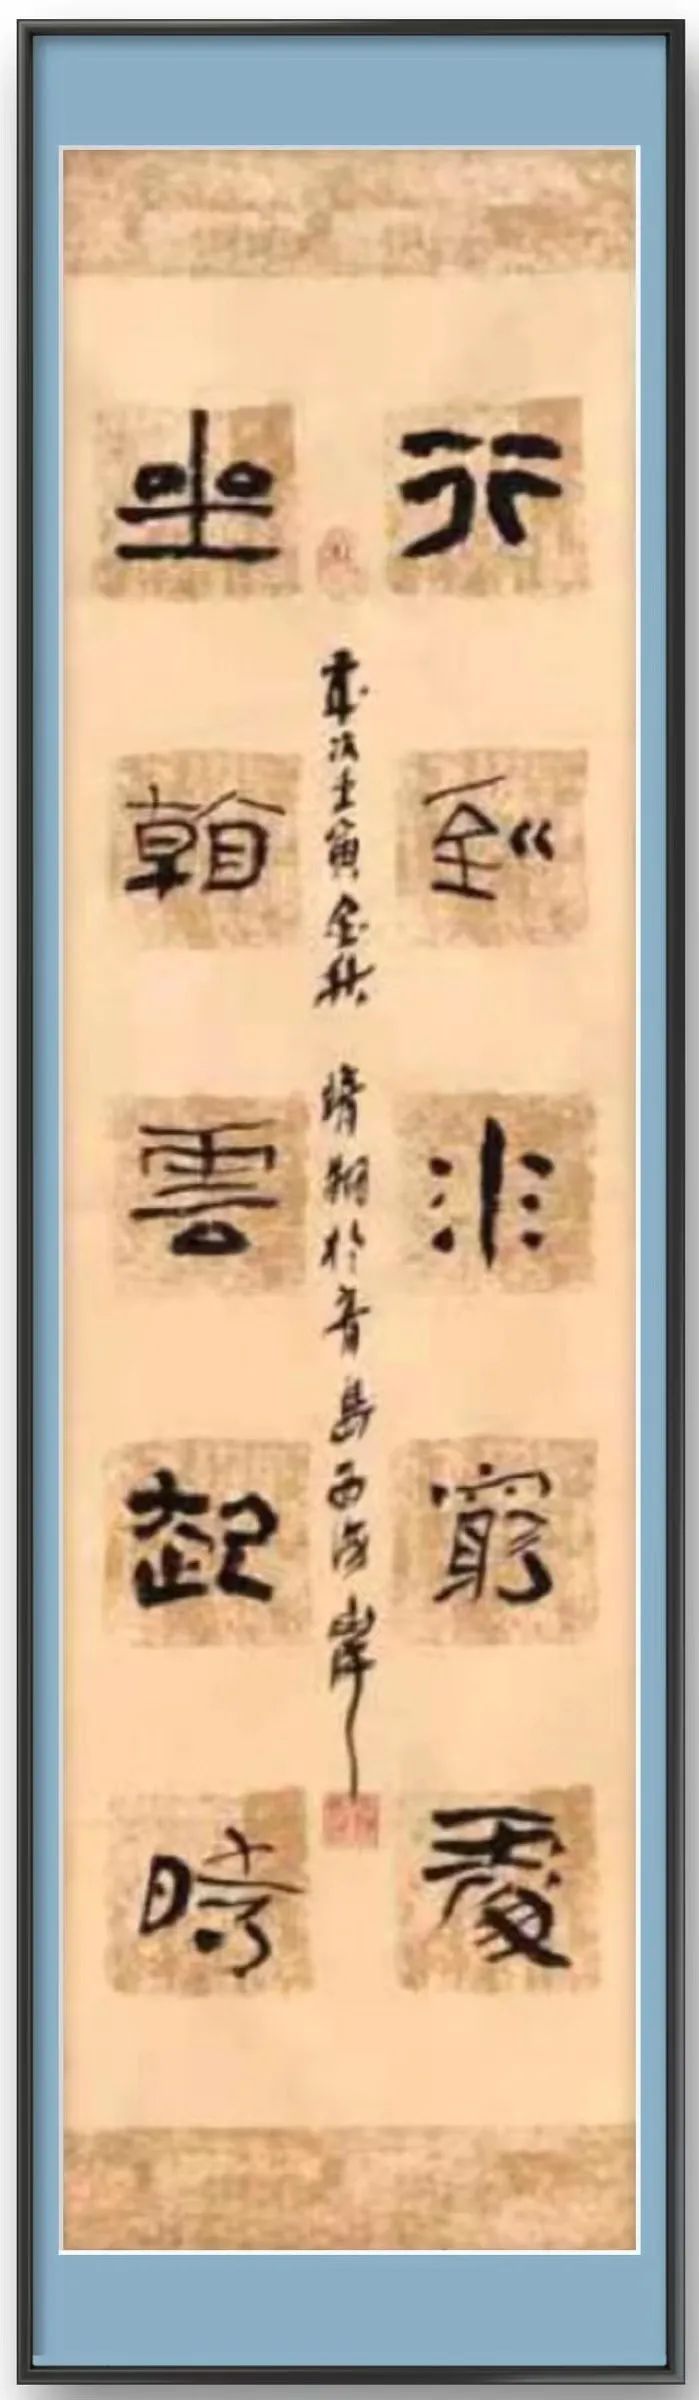 行到水窮處
歲次壬寅金秋 於青島西海岸
坐看雲起時